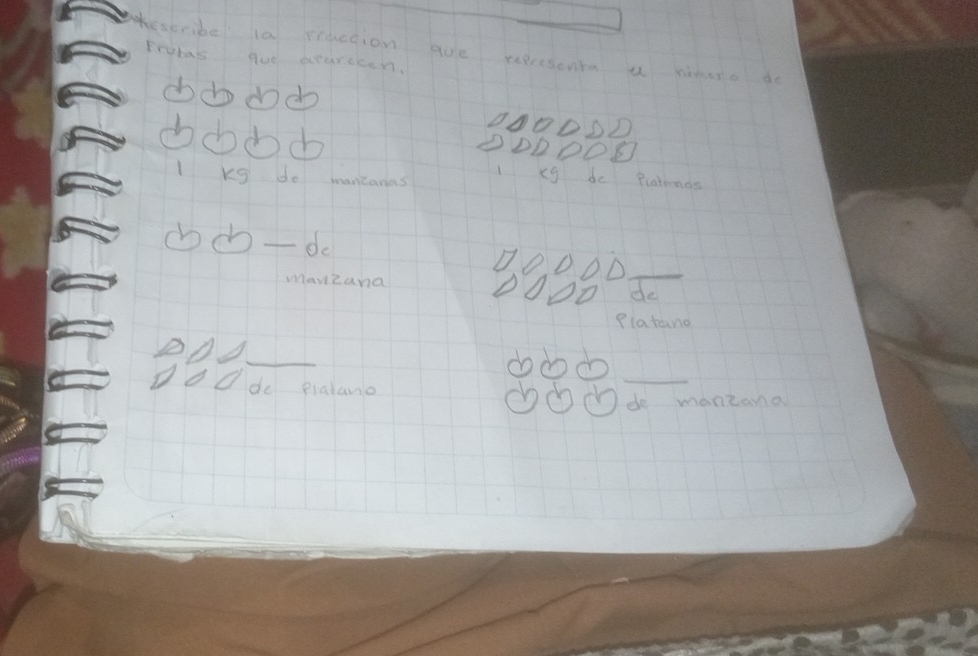 describe la fraccion que representa el número de
frutas que aparecen.
1 kg de manzanas
1 kg de Platanos
— de
manzana
de
Platano
de Platano
de manzana